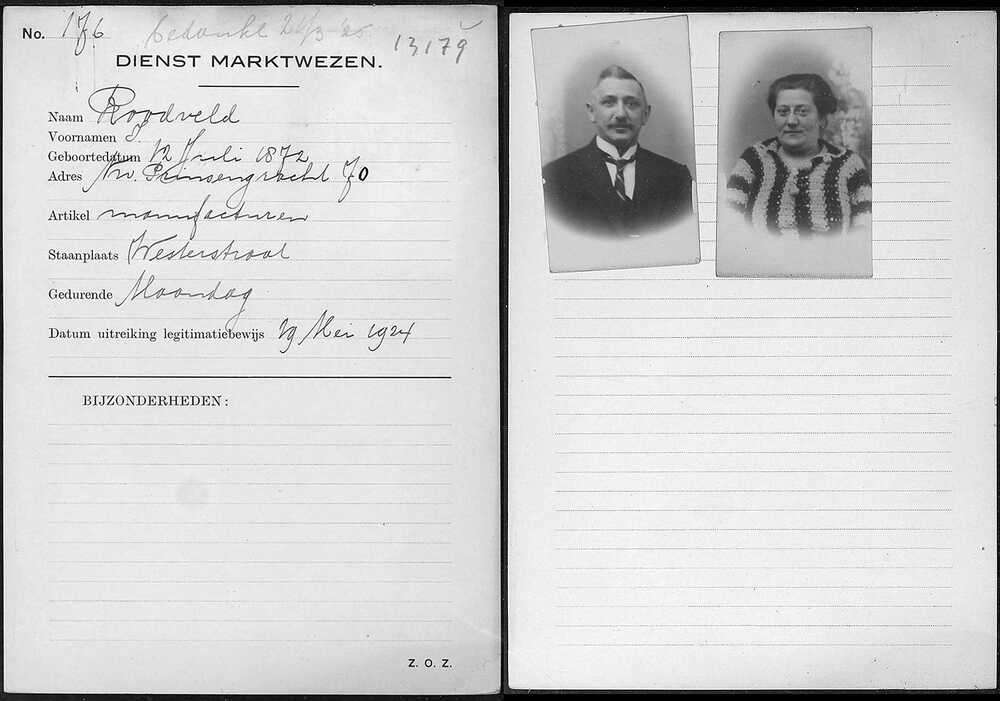 No. 176 bedankt 21/3 '25. 13179
DIENST MARKTWEZEN.
Naam Roodveld
Voornamen S.
Geboortedatum 12 Juli 1872
Adres Nw. Prinsengracht 70
Artikel manufacturen
Staanplaats Westerstraat
Gedurende Maandag
Datum uitreiking legitimatiebewijs 19 Mei 1924
BIJZONDERHEDEN:
Z. O. Z.